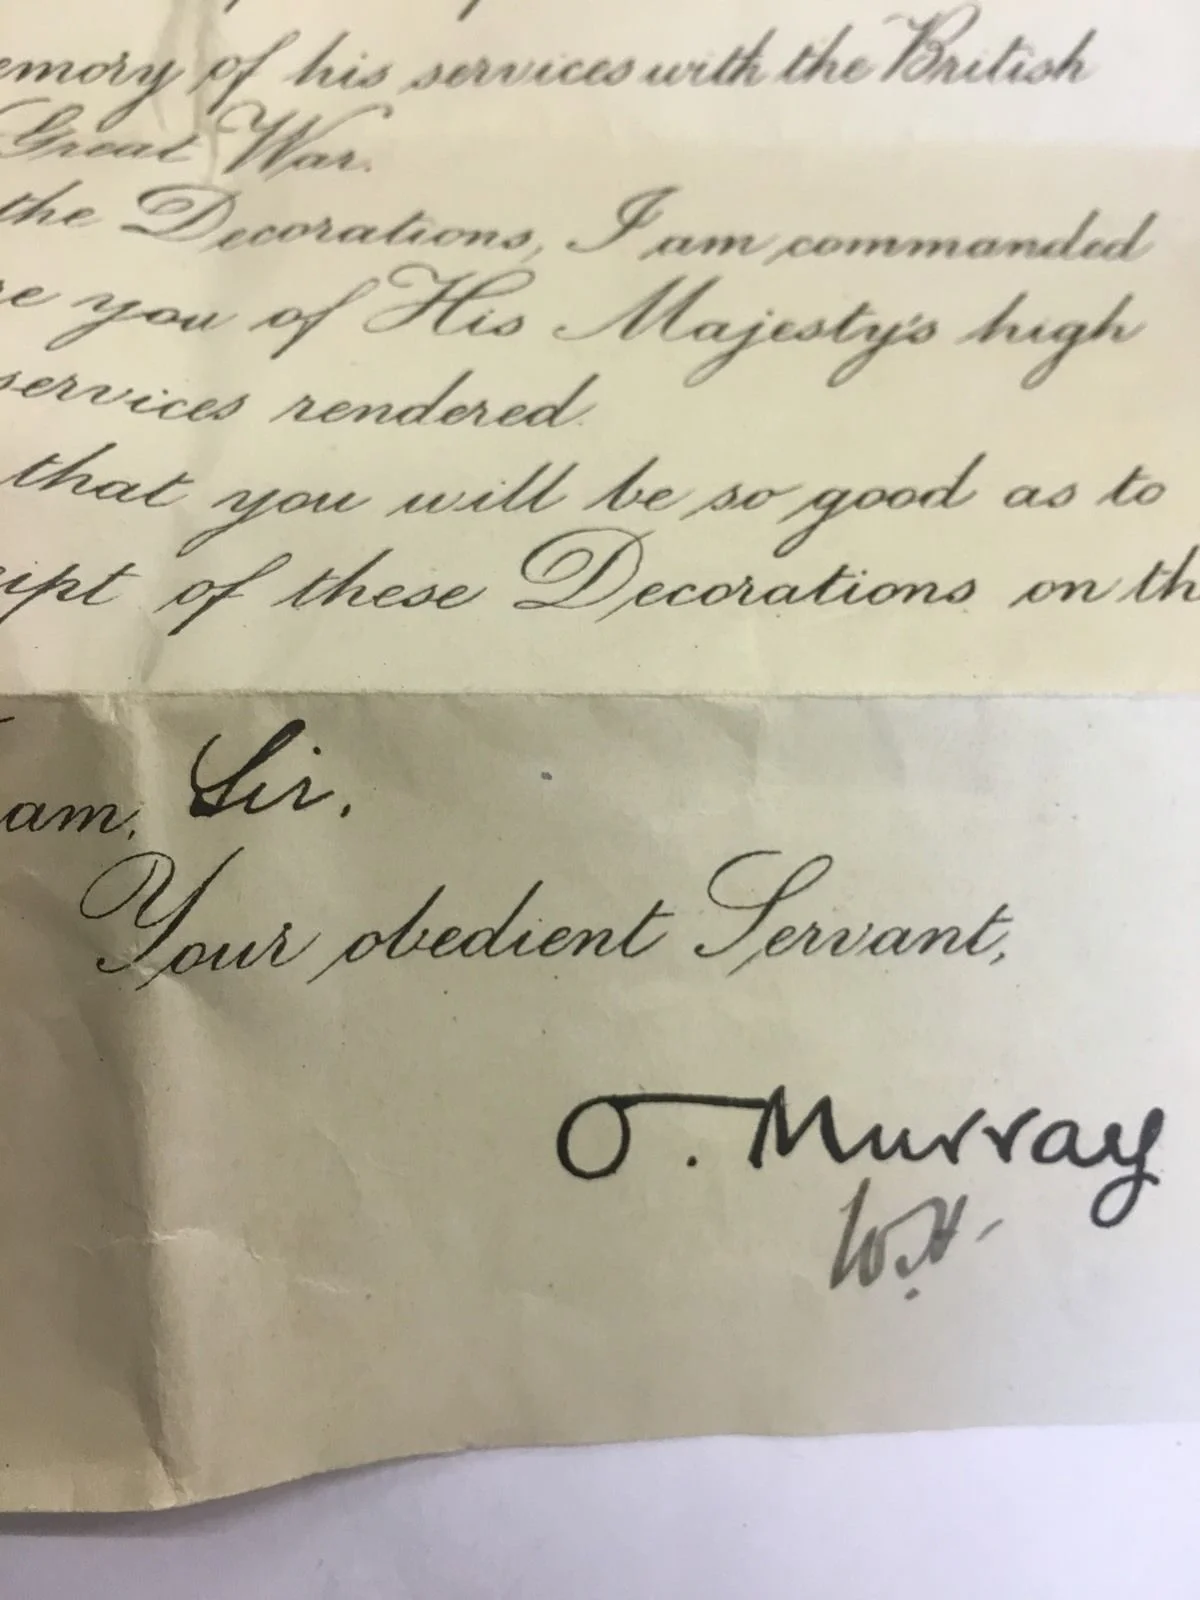 emory of his services with the British
Great War.
the Decorations, I am commanded
re you of His Majesty's high
services rendered.
that you will be so good as to
eipt of these Decorations on th
am, Sir,
Your obedient Servant,
O. Murray